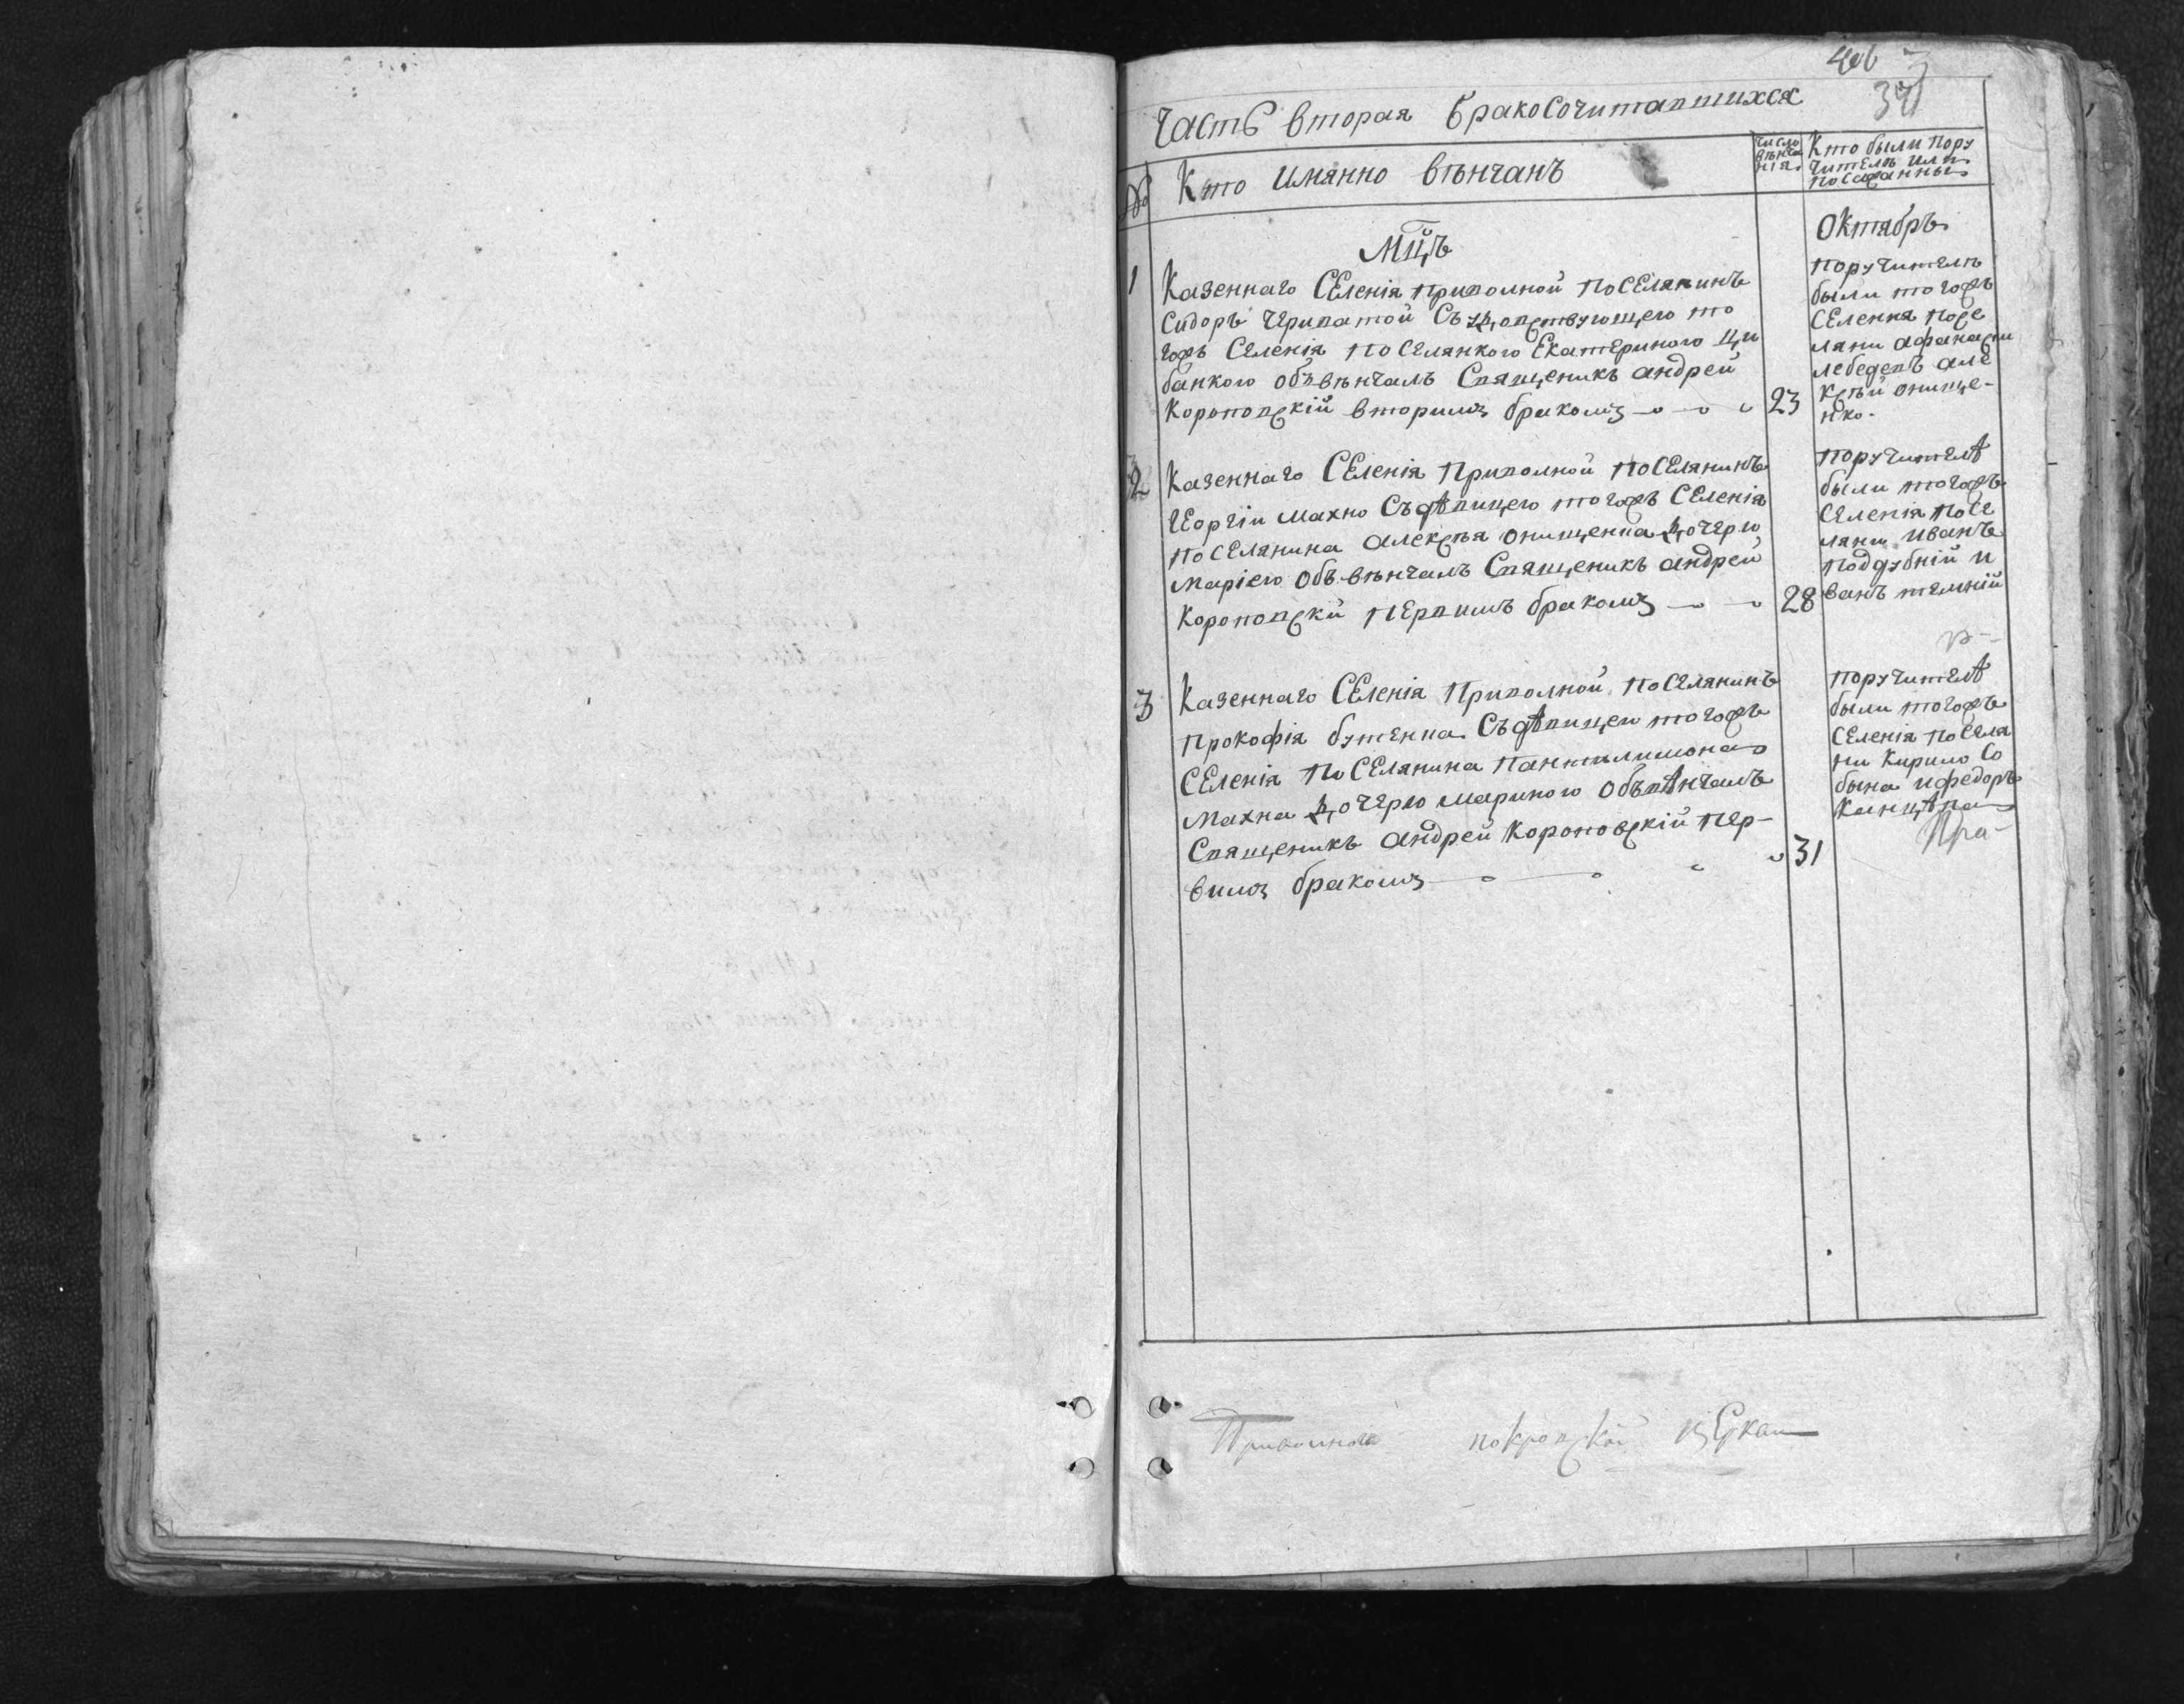 Часть вторая бракосочитавшихся
№
Кто имянно вѣнчанъ
число вѣнча нія
Кто были пору
чителѣ или
Мц̃ъ
Октябръ
1
Казеннаго Селенія Приволной поселянинъ
Сидоръ Черватой Съ вдовствующею то
гожъ Селенія поселянкою Екатериною Ци
банкою объвѣнчалъ Священикъ андрей
Короповскій вторимъ бракомъ
23
поручителѣ
были тогожъ
Селения посе
ляни афанасій
лебедевъ але
ксѣй онище-
нко.
2
Казеннаго Селенія Приволной поселянинъ
Георгій Махно Съ дѣвицею тогожъ Селенія
поселянина алексѣя онищенка дочерю
Маріею объвѣнчалъ Священикъ андрей
Короповскій первимъ бракомъ
28
поручителѣ
были тогожъ
Селенія посе
ляни Иванъ
поддубній и
ванъ темній
3
Казеннаго Селенія Приволной поселянинъ
Прокофія бутенка Съ дѣвицею тогожъ
Селенія поселянина Пантилимона
Махна дочерю Мариною объвѣнчалъ
Священикъ андрей Короповскій пер-
вимъ бракомъ
31
поручителѣ
были тогожъ
Селенія поселя
ни Кирило Со
бына ифедоръ
Приволной покровской церкви